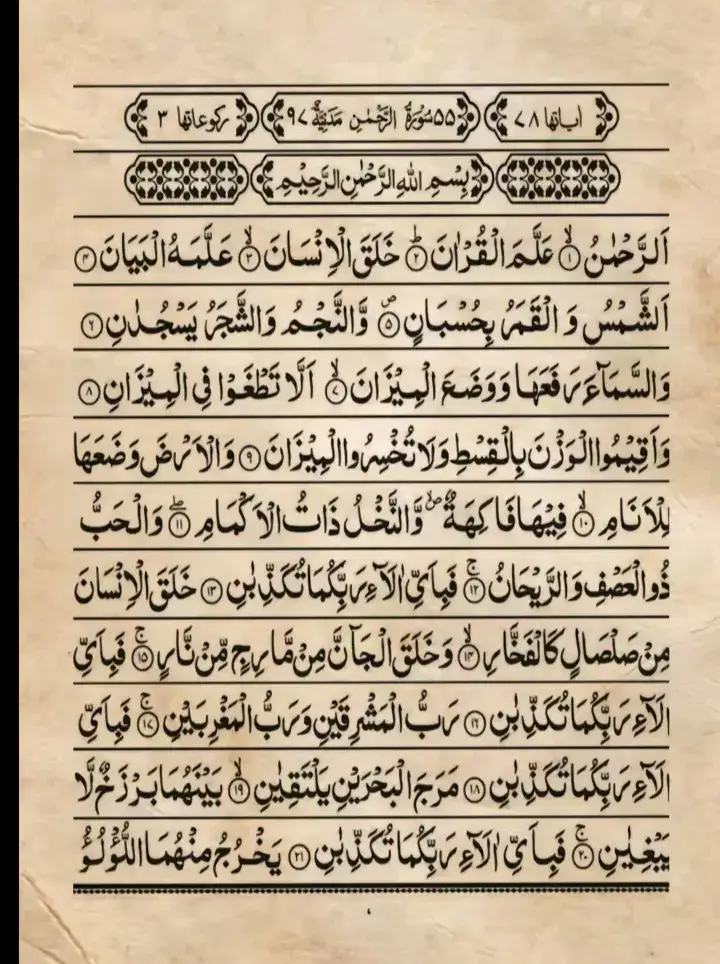 اٰیاتها ۷۸ ۵۵ سُوْرَةُ الرَّحْمٰنِ مَدَنِیَّةٌ ۹۷ رکوعاتها ۳
بِسْمِ اللهِ الرَّحْمٰنِ الرَّحِیْمِ
اَلرَّحْمٰنُ ۙ﴿۱﴾ عَلَّمَ الْقُرْاٰنَ ؕ﴿۲﴾ خَلَقَ الْاِنْسَانَ ۙ﴿۳﴾ عَلَّمَهُ الْبَیَانَ ﴿۴﴾
اَلشَّمْسُ وَ الْقَمَرُ بِحُسْبَانٍ ۪﴿۵﴾ وَّالنَّجْمُ وَالشَّجَرُ یَسْجُدٰنِ ﴿۶﴾
وَالسَّمَآءَ رَفَعَهَا وَوَضَعَ الْمِیْزَانَ ۙ﴿۷﴾ اَلَّا تَطْغَوْا فِی الْمِیْزَانِ ﴿۸﴾
وَاَقِیْمُوا الْوَزْنَ بِالْقِسْطِ وَلَا تُخْسِرُوا الْمِیْزَانَ ﴿۹﴾ وَالْاَرْضَ وَضَعَهَا
لِلْاَنَامِ ۙ﴿۱۰﴾ فِیْهَا فَاكِهَةٌ ۪ۙ وَّالنَّخْلُ ذَاتُ الْاَكْمَامِ ۖ﴿۱۱﴾ وَالْحَبُّ
ذُو الْعَصْفِ وَالرَّیْحَانُ ۚ﴿۱۲﴾ فَبِاَیِّ اٰلَآءِ رَبِّكُمَا تُكَذِّبٰنِ ﴿۱۳﴾ خَلَقَ الْاِنْسَانَ
مِنْ صَلْصَالٍ كَالْفَخَّارِ ۙ﴿۱۴﴾ وَخَلَقَ الْجَآنَّ مِنْ مَّارِجٍ مِّنْ نَّارٍ ۚ﴿۱۵﴾ فَبِاَیِّ
اٰلَآءِ رَبِّكُمَا تُكَذِّبٰنِ ﴿۱۶﴾ رَبُّ الْمَشْرِقَیْنِ وَرَبُّ الْمَغْرِبَیْنِ ۚ﴿۱۷﴾ فَبِاَیِّ
اٰلَآءِ رَبِّكُمَا تُكَذِّبٰنِ ﴿۱۸﴾ مَرَجَ الْبَحْرَیْنِ یَلْتَقِیٰنِ ۙ﴿۱۹﴾ بَیْنَهُمَا بَرْزَخٌ لَّا
یَبْغِیٰنِ ۚ﴿۲۰﴾ فَبِاَیِّ اٰلَآءِ رَبِّكُمَا تُكَذِّبٰنِ ﴿۲۱﴾ یَخْرُجُ مِنْهُمَا اللُّؤْلُؤُ